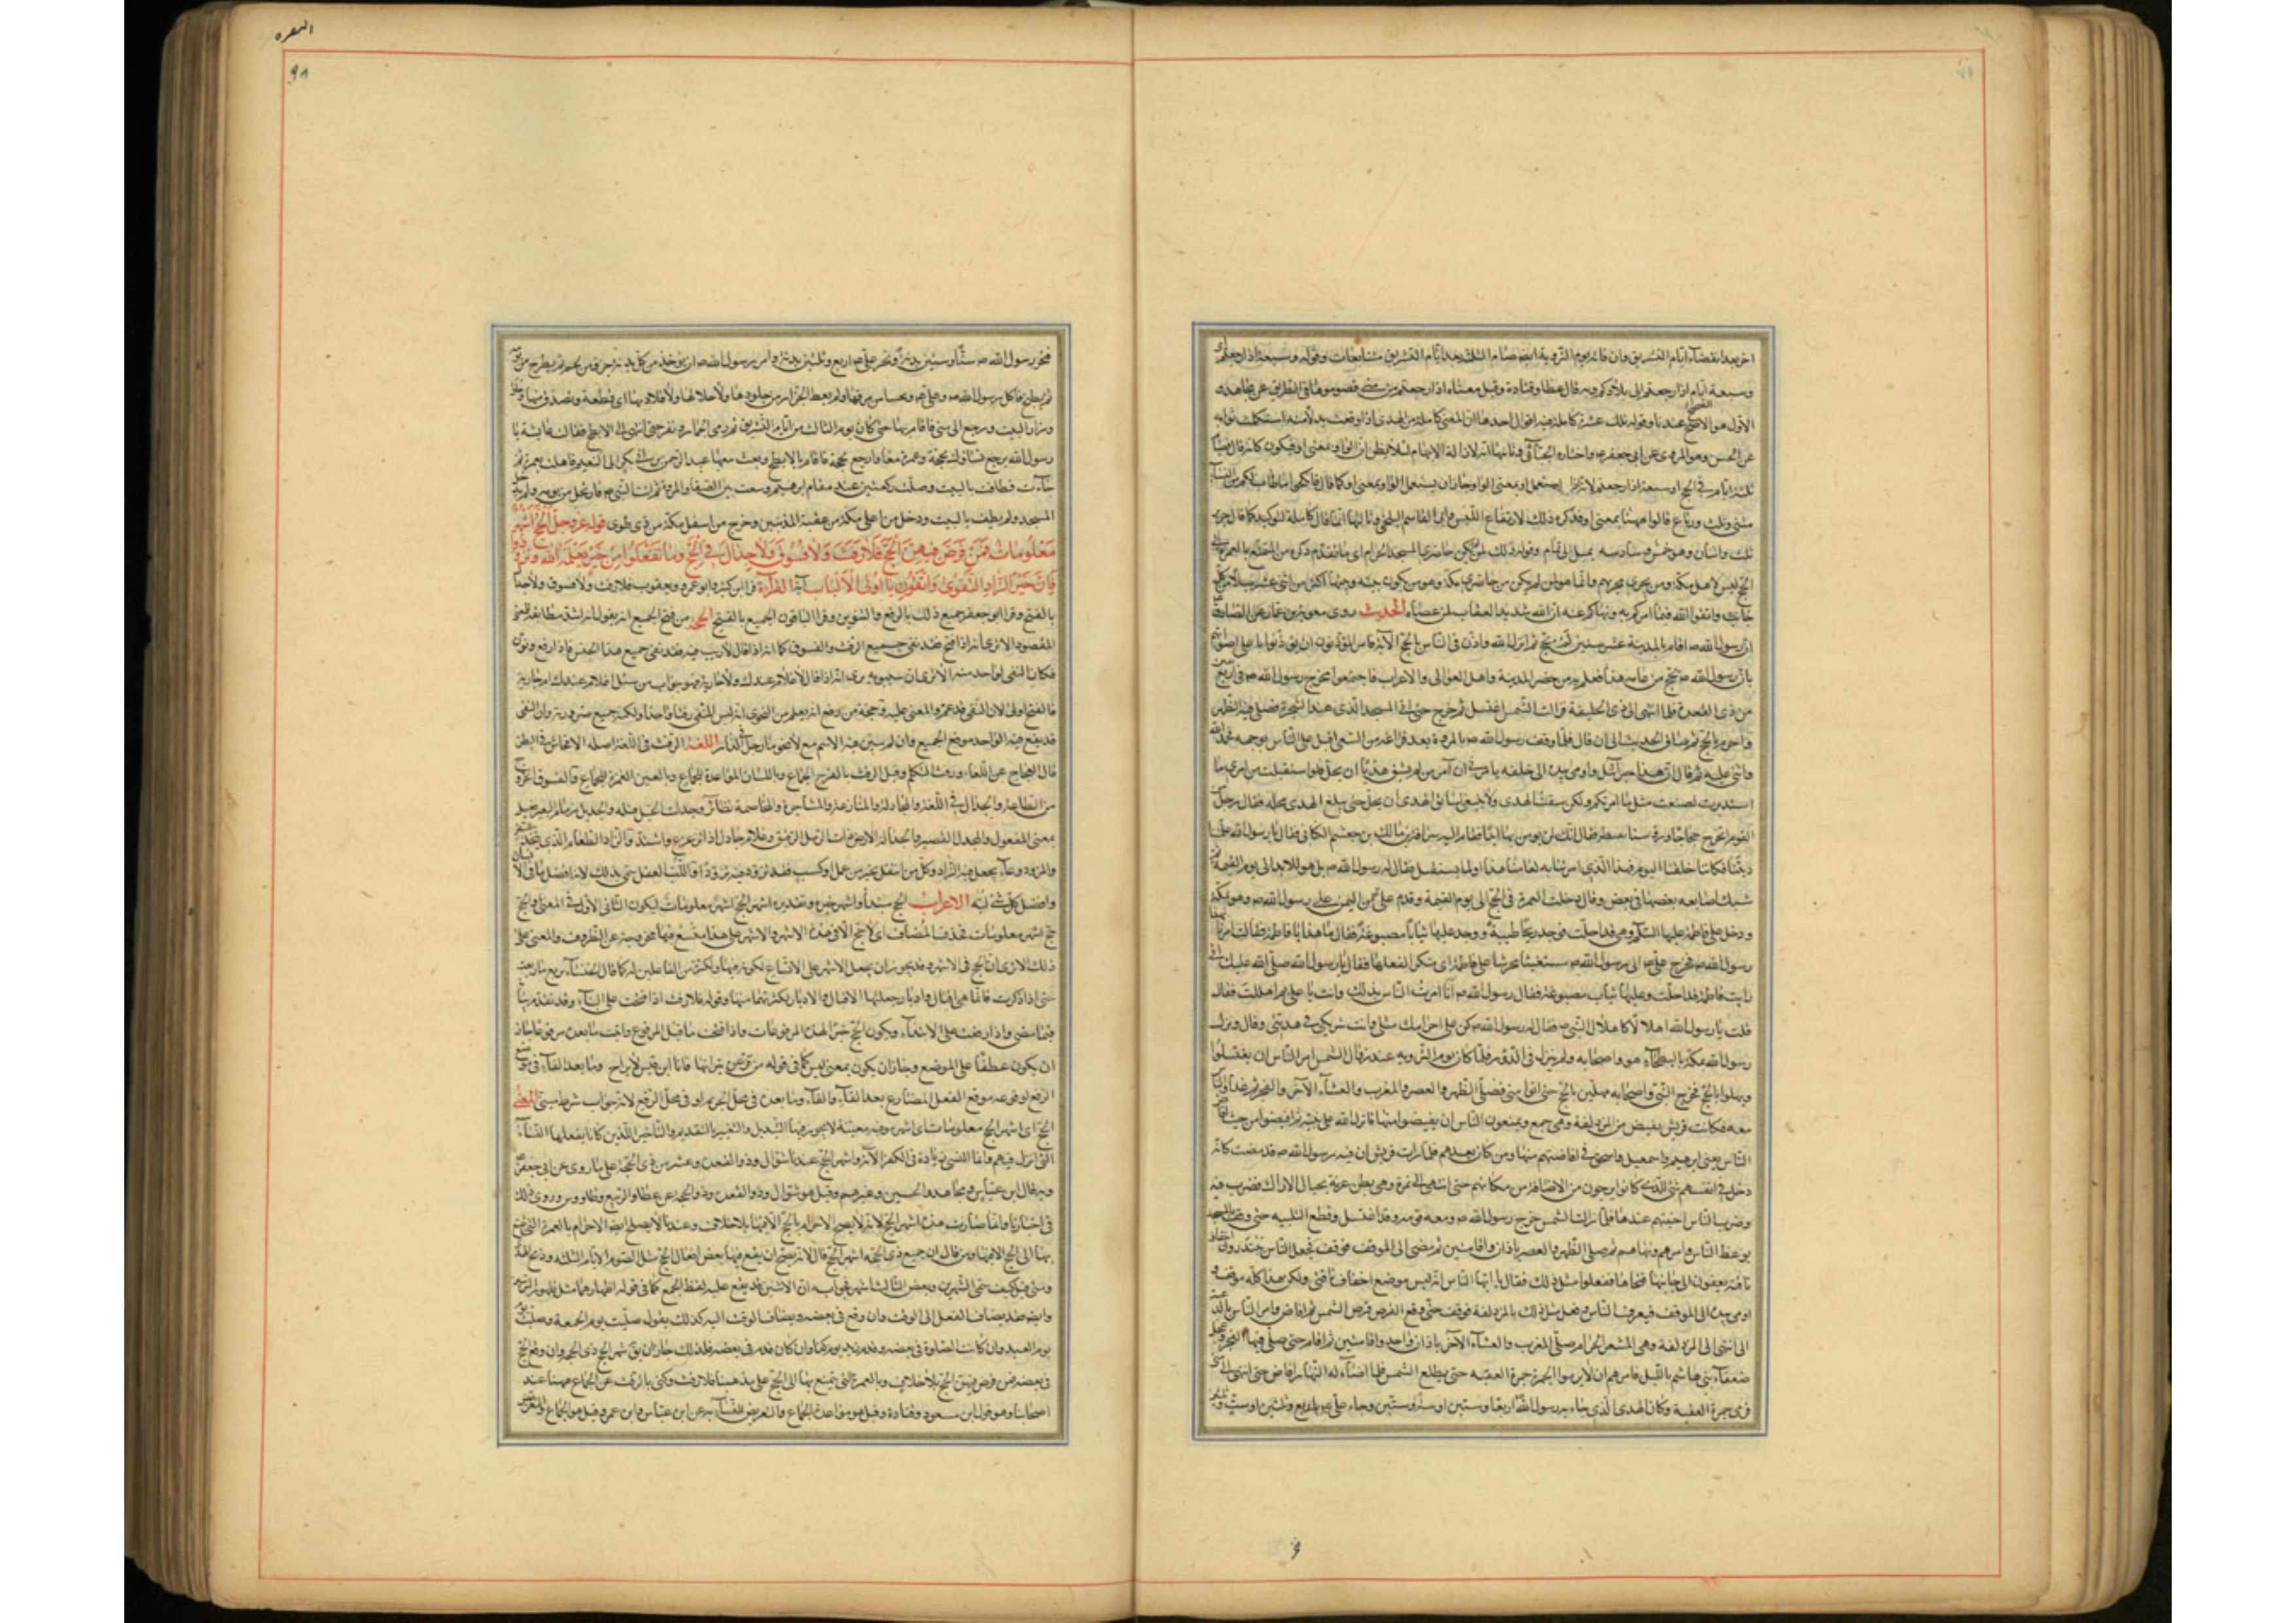 اخر بعد انقضاء ايام التشريق وان فاته يوم التروية ايضا صام الثلث بعد ايام التشريق متتابعات وقوله وسبعة اذا رجعتم اى
وسبعة ايام اذا رجعتم الى بلادكم وبه قال عطا وقتادة وقيل معناه اذا رجعتم من منى فصوموها فى الطريق عن مجاهد و
الاول هو الاصح عندنا وقوله تلك عشرة كاملة فيه اقوال احدها ان المعنى كاملة من الهدى اذا وقعت بدلا منه استكملت ثوابه
عن الحسن وهو المروى عن ابى جعفر ع واختاره الجبائى وثانيها انه لازالة الابهام لئلا يظن ان الواو بمعنى او فيكون كانه قال فصيام
ثلثة ايام فى الحج او سبعة اذا رجعتم لانه اذا استعمل او بمعنى الواو جاز ان يستعمل الواو بمعنى او كما قال فانكحوا ما طاب لكم من النساء
مثنى وثلث ورباع فالواو ههنا بمعنى او فذكر ذلك لارتفاع اللبس وثالثها انما قال كاملة للتوكيد كما قال جرير
ثلث واثنتان وهو خمس وسادسة يميل الى تمام وقوله ذلك لمن لم يكن حاضرى المسجد الحرام اى ما تقدم ذكره من التمتع بالعمرة الى
الحج ليس لاهل مكة ومن يجرى مجريهم وانما هو لمن لم يكن من حاضرى مكة وهو من يكون بينه وبينها اكثر من اثنى عشر ميلا من كل
جانب واتقوا الله فيما امركم به ونهاكم عنه ان الله شديد العقاب لمن عصاه الحديث روى معوية بن عمار عن الصادق
ان رسول الله ص اقام بالمدينة عشر سنين لم يحج ثم انزل الله واذن فى الناس بالحج الاية فامر المؤذنون ان يؤذنوا باعلى اصواتهم
بان رسول الله ص يحج من عامه هذا فعلم به من حضر المدينة واهل العوالى والاعراب فاجتمعوا فخرج رسول الله ص فى اربع بقين
من ذى القعدة فلما انتهى الى ذى الحليفة فزالت الشمس اغتسل ثم خرج حتى اتى المسجد الذى عند الشجرة فصلى فيه الظهر
واحرم بالحج ثم ساق الحديث الى ان قال فلما وقف رسول الله ص بالمروة بعد فراغه من السعى اقبل على الناس بوجهه فحمد الله
واثنى عليه ثم قال ان هذا جبرائيل واومى بيده الى خلفه يامرنى ان آمر من لم يسق هديا ان يحل ولو استقبلت من امرى ما
استدبرت لصنعت مثل ما امرتكم ولكنى سقت الهدى ولا ينبغى لسائق الهدى ان يحل حتى يبلغ الهدى محله فقال رجل من
القوم انخرج حجاجا ورؤسنا تقطر فقال انك لن تؤمن بها ابدا فقام اليه سراقة بن مالك بن جعشم الكنانى فقال يا رسول الله علمنا
ديننا فكانا خلقنا اليوم فهذا الذى امرتنا به لعامنا هذا او لما يستقبل فقال له رسول الله ص بل هو للابد الى يوم القيمة ثم
شبك اصابعه بعضها فى بعض وقال دخلت العمرة فى الحج الى يوم القيمة وقدم على من اليمن على رسول الله ص وهو بمكة
ودخل على فاطمة عليها السلام وهى قد احلت فوجد ريحا طيبة ووجد عليها ثيابا مصبوغة فقال ما هذا يا فاطمة فقالت امرنا بهذا
رسول الله ص فخرج على ع الى رسول الله ص مستفتيا محرشا على فاطمة فقال يا رسول الله صلى الله عليك انى
رايت فاطمة قد احلت وعليها ثياب مصبوغة فقال رسول الله ص انا امرت الناس بذلك وانت يا على بم اهللت فقال
قلت يا رسول الله اهلالا كاهلال النبى ص فقال له رسول الله ص كن على احرامك مثلى وانت شريكى فى هديى وقال ونزل
رسول الله بمكة بالبطحاء هو واصحابه ولم ينزل فى الدور فلما كان يوم التروية عند زوال الشمس امر الناس ان يغتسلوا
ويهلوا بالحج فخرج النبى واصحابه مهلين بالحج حتى اتوا منى فصلى الظهر والعصر والمغرب والعشاء الآخرة والفجر ثم غدا والناس
معه فكانت قريش تفيض من المزدلفة وهى جمع ويمنعون الناس ان يفيضوا منها فانزل الله على نبيه ثم افيضوا من حيث افاض
الناس يعنى ابرهيم واسمعيل واسحق فى افاضتهم منها ومن كان بعدهم فلما رات قريش ان قبة رسول الله ص قد مضت كانه
دخل فى انفسهم شئ للذى كانوا يرجون من الافاضة من مكانهم حتى انتهى الى نمرة وهى بطن عرنة بحيال الاراك فضرب قبته
وضرب الناس اخبيتهم عندها فلما زالت الشمس خرج رسول الله ص ومعه قومه وقد اغتسل وقطع التلبية حتى وقف بالمسجد
فوعظ الناس وامرهم ونهاهم ثم صلى الظهر والعصر باذان واقامتين ثم مضى الى الموقف فوقف فجعل الناس يبتدرون اخفاف
ناقته يقفون الى جانبها فنحاها ففعلوا مثل ذلك فقال يا ايها الناس انه ليس موضع اخفاف ناقتى ولكن هذا كله موقف و
اومى بيده الى الموقف فتفرق الناس وفعل مثل ذلك بالمزدلفة فوقف حتى وقع القرص قرص الشمس ثم افاض وامر الناس بالدعة
الى انتهى الى المزدلفة وهى المشعر الحرام فصلى المغرب والعشاء الآخرة باذان واحد واقامتين ثم اقام حتى صلى فيها الفجر وعجل
ضعفاء بنى هاشم بالليل فامرهم ان لا يرموا الجمرة جمرة العقبة حتى يطلع الشمس فلما اضاء له النهار افاض حتى انتهى الى منى
فرمى جمرة العقبة وكان الهدى الذى جاء به رسول الله اربعا وستين او ستة وستين وجاء على ع باربع وثلثين او ست وثلثين
و
البقره
٩٨
فنحر رسول الله ص ستا وستين بدنة ونحر على ع اربع وثلثين بدنة وامر رسول الله ص ان يؤخذ من كل بدنة منها جذوة من لحم ثم يطرح فى برمة
ثم يطبخ فاكل رسول الله ص وعلى ع منها وتحسيا من مرقها ولم يعط الجزارين جلودها ولا جلالها ولا قلائدها اى قطعة وتصدق به وحلق
وزار البيت ورجع الى منى فاقام بها حتى كان يوم الثالث من ايام التشريق ثم رمى الجمار ونفر حتى انتهى الى الابطح فقالت عايشة يا
رسول الله ترجع نساؤك بحجة وعمرة معا وارجع بحجة فاقام بالابطح وبعث معها عبد الرحمن بن ابى بكر الى التنعيم فاهلت بعمرة ثم
جاءت فطافت بالبيت وصلت ركعتين عند مقام ابرهيم وسعت بين الصفا والمروة ثم اتت النبى ص فارتحل من يومه ولم يدخل
المسجد ولم يطف بالبيت ودخل من اعلى مكة من عقبة المدنيين وخرج من اسفل مكة من ذى طوى قوله عز وجل الحج اشهر
معلومات فمن فرض فيهن الحج فلا رفث ولا فسوق ولا جدال فى الحج وما تفعلوا من خير يعلمه الله وتزودوا
فان خير الزاد التقوى واتقون يا اولى الالباب آية القراءة قرا ابن كثير وابو عمرو ويعقوب فلا رفث ولا فسوق ولا جدال
بالفتح وقرا ابو جعفر جميع ذلك بالرفع والتنوين وقرا الباقون الجميع بالفتح الحجة من فتح الجميع انه يقول انه اشد مطابقة للمعنى
المقصود الا ترى انه اذا فتح فقد نفى جميع الرفث والفسوق كما انه اذا قال لا ريب فيه فقد نفى جميع هذا الجنس فاذا رفع ونون
فكان النفى لواحد منه الا ترى ان سيبويه يرى انه اذا قال لا غلام عندك ولا جارية فهو جواب من سئل اغلام عندك ام جارية
فالفتح اولى لان النفى قد عم والمعنى عليه وحجة من رفع انه يعلم من الفحوى انه ليس المنفى رفثا واحدا ولكنه جميع ضروبه وان النفى
قد يقع فيه الواحد موقع الجميع وان لم يبن فيه الاسم مع لا نحو ما رجل فى الدار اللغة الرفث فى اللغة اصله الافحاش فى النطق
قال العجاج عن اللغا ورفث التكلم وقيل الرفث بالفرج الجماع وباللسان المواعدة للجماع وبالعين الغمز للجماع والفسوق الخروج
من الطاعة والجدال فى اللغة والمجادلة والمنازعة والمشاجرة والمخاصمة نظائر وجدلت الحبل فتلته والجديل زمام البعير فعيل
بمعنى المفعول والمجدل القصر والجدالة الارض ذات الرمل الرقيق وغلام جادل اذا ترعرع واشتد والزاد الطعام الذى يتخذ للسفر
والمزود وعاء يجعل فيه الزاد وكل من انتقل بخير من عمل او كسب فقد تزود منه تزودا واللب العقل سمى بذلك لانه افضل ما فى الانسان
وافضل كل شئ لبه الاعراب الحج مبتدا واشهر خبره وتقديره اشهر الحج اشهر معلومات ليكون الثانى الاول فى المعنى والحج
حج اشهر معلومات فحذف المضاف اى لا حج الا فى هذه الاشهر والاشهر على هذا متسع فيها مخرجة عن الظروف والمعنى على
ذلك الا ترى ان الحج فى الاشهر وقد يجوز ان يجعل الاشهر على الاتساع لكونه فيها ولكثرته من الفاعلين له كما قال الخنساء ترتع ما رتعت
حتى اذا ادكرت فانما هى اقبال وادبار جعلتها الاقبال والادبار لكثرتهما منها وقوله فلا رفث اذا فتحت على البناء وقد تقدم بيانه
فيما مضى واذا رفعت على الابتداء ويكون فى الحج خبرا لهذه المرفوعات واذا فتحت ما قبل المرفوع ورفعت ما بعده مرفوعا جاز
ان يكون عطفا على الموضع وجاز ان يكون بمعنى ليس كما فى قوله من صد عن نيرانها فانا ابن قيس لا براح وما بعد الفاء فى موضع
الرفع لوقوعه موقع الفعل المضارع بعد الفاء والفاء وما بعده فى محل الجزم او فى محل الرفع لانه جواب شرط مبنى المعنى
الحج اى اشهر الحج معلومات اى اشهر موقتة معينة لا يجوز فيها التبديل والتغيير بالتقديم والتاخير الذين كان يفعلهما النسأة
الذين انزل فيهم وانما النسئ زيادة فى الكفر الاية واشهر الحج عندنا شوال وذو القعدة وعشر من ذى الحجة على ما روى عن ابى جعفر
وبه قال ابن عباس ومجاهد والحسن وغيرهم وقيل هو شوال وذو القعدة وذو الحجة عن عطا والربيع وطاووس وروى ذلك
فى اخبارنا وانما صارت هذه اشهر الحج لانه لا يصح الاحرام بالحج الا فيها بلا خلاف وعندنا لا يصح ايضا الاحرام بالعمرة التى يتمتع
بها الى الحج الا فيها ومن قال ان جميع ذى الحجة اشهر الحج قال لانه يصح ان يقع فيها بعض افعال الحج مثل صوم الايام الثلثة وذبح الهدى
ومتى قيل كيف سمى الشهرين وبعض الثالث اشهرا فجوابه ان الاثنين قد يقع عليه لفظ الجمع كما فى قوله ظهراهما مثل ظهور الترسين
وايضا قد يضاف الفعل الى الوقت وان وقع فى بعضه ويضاف الوقت اليه كذلك يقول صليت يوم الجمعة وصليت
يوم العيد وان كانت الصلوة فى بعضه وقدم زيد يوم كذا وان كان قدم فى بعضه فكذلك جاز ان يق شهر الحج ذى الحجة وان وقع الحج
فى بعضه فمن فرض فيهن الحج بلا خلاف وبالعمرة التى يتمتع بها الى الحج على مذهبنا فلا رفث وكنى بالرفث عن الجماع ههنا عند
اصحابنا وهو قول ابن مسعود وقتادة وقيل هو مواعدة الجماع والتعريض للنساء به عن ابن عباس وابن عمر وقيل هو الجماع والتعريض